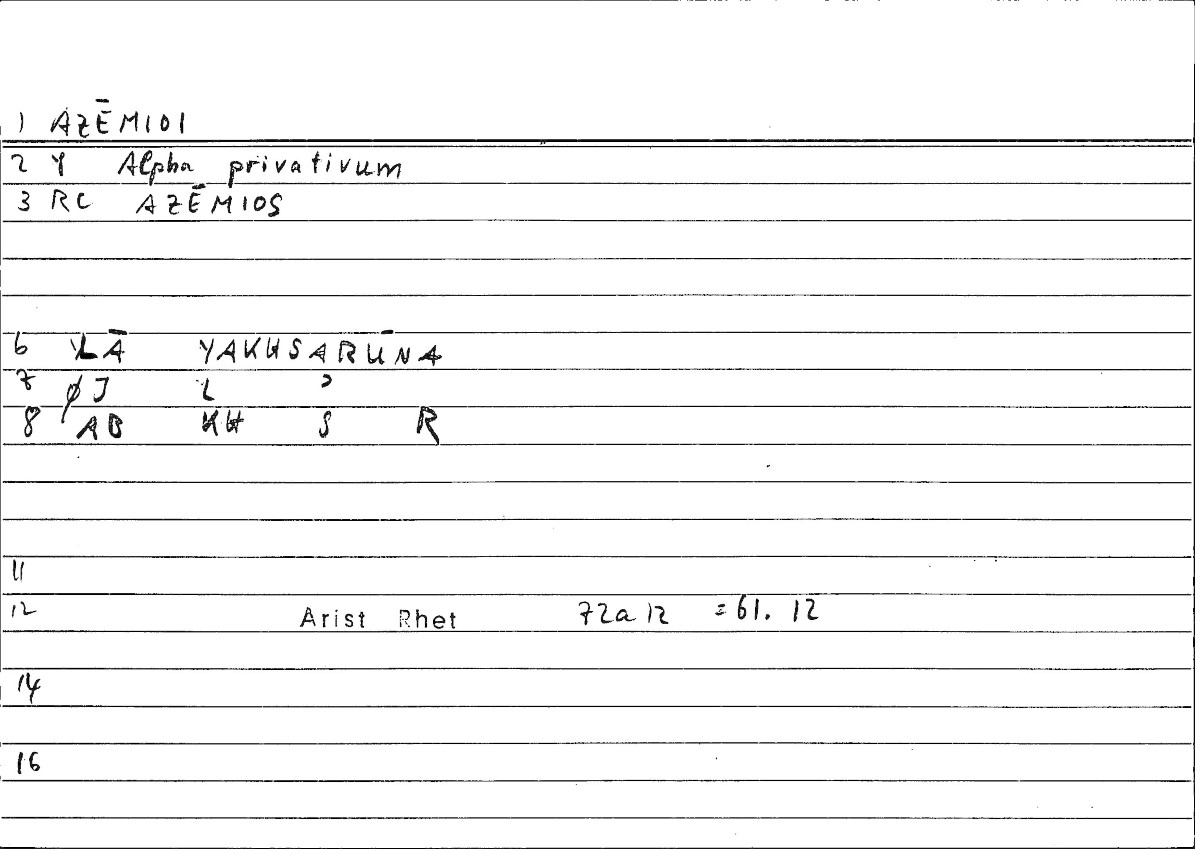 1 AZĒMIOI
2 Y Alpha privativum
3 RC AZĒMIOS
6 LĀ YAKHSARŪNA
7 ØJ L ?
8 AB KH S R
11
12 Arist Rhet 72a12 =61.12
14
16